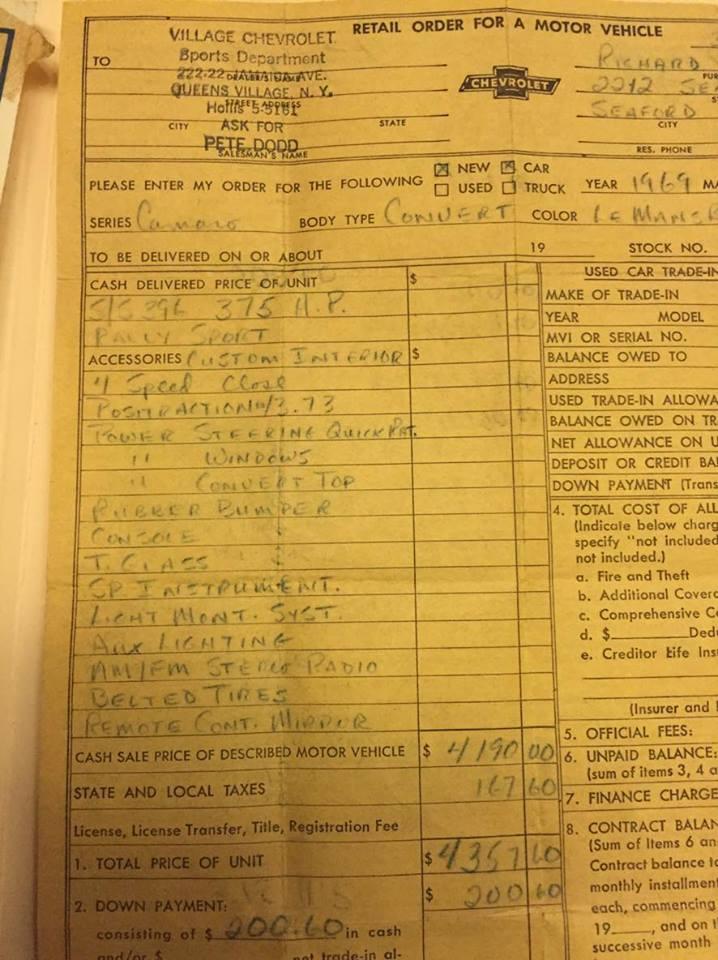 RETAIL ORDER FOR A MOTOR VEHICLE
TO
VILLAGE CHEVROLET
Sports Department
222-22 JAMAICA AVE.
QUEENS VILLAGE, N. Y.
STREET ADDRESS
Hollis 5-5161
CITY ASK FOR STATE
PETE DODD
SALESMAN'S NAME
CHEVROLET
RICHARD
2212
SEAFORD
CITY
RES. PHONE
PLEASE ENTER MY ORDER FOR THE FOLLOWING NEW CAR
USED TRUCK YEAR 1969
SERIES Camaro BODY TYPE CONVERT COLOR LE MANS
TO BE DELIVERED ON OR ABOUT 19 STOCK NO.
CASH DELIVERED PRICE OF UNIT $
S/S 396 375 H.P.
RALLY SPORT
ACCESSORIES CUSTOM INTERIOR $
4 Speed Close
POSITRACTION 3.73
POWER STEERING QUICK RAT.
" WINDOWS
" CONVERT TOP
RUBBER BUMPER
CONSOLE
T. GLASS
SP. INSTRUMENT.
LIGHT MONT. SYST.
AUX LIGHTING
AM/FM STEREO RADIO
BELTED TIRES
REMOTE CONT. MIRROR
CASH SALE PRICE OF DESCRIBED MOTOR VEHICLE $ 4190 00
STATE AND LOCAL TAXES 167 60
License, License Transfer, Title, Registration Fee
1. TOTAL PRICE OF UNIT $ 4357 60
2. DOWN PAYMENT: $ 200 60
consisting of $ 200.60 in cash
and/or $ net trade-in al-
USED CAR TRADE-IN
MAKE OF TRADE-IN
YEAR MODEL
MVI OR SERIAL NO.
BALANCE OWED TO
ADDRESS
USED TRADE-IN ALLOWA
BALANCE OWED ON TR
NET ALLOWANCE ON U
DEPOSIT OR CREDIT BA
DOWN PAYMENT (Trans
4. TOTAL COST OF ALL
(Indicate below charg
specify "not included
not included.)
a. Fire and Theft
b. Additional Covera
c. Comprehensive Co
d. $ Dedu
e. Creditor Life Ins
(Insurer and
5. OFFICIAL FEES:
6. UNPAID BALANCE:
(sum of items 3, 4 a
7. FINANCE CHARGE
8. CONTRACT BALAN
(Sum of Items 6 an
Contract balance to
monthly installment
each, commencing
19 , and on t
successive month